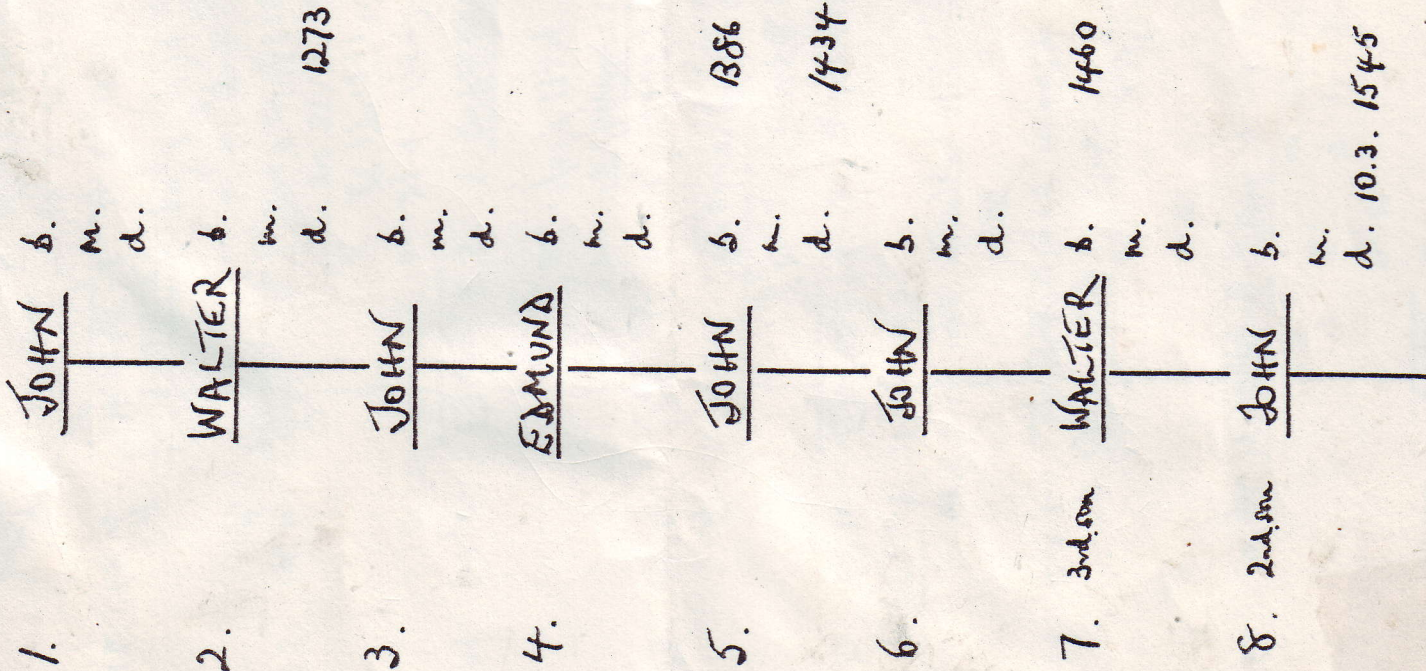 1. JOHN b.
m.
d.
2. WALTER b.
m.
d. 1273
3. JOHN b.
m.
d.
4. EDMUND b.
m.
d.
5. JOHN b. 1386
m.
d. 1434
6. JOHN b.
m.
d.
7. 3rd son WALTER b. 1460
m.
d.
8. 2nd son JOHN b.
m.
d. 10.3. 1545